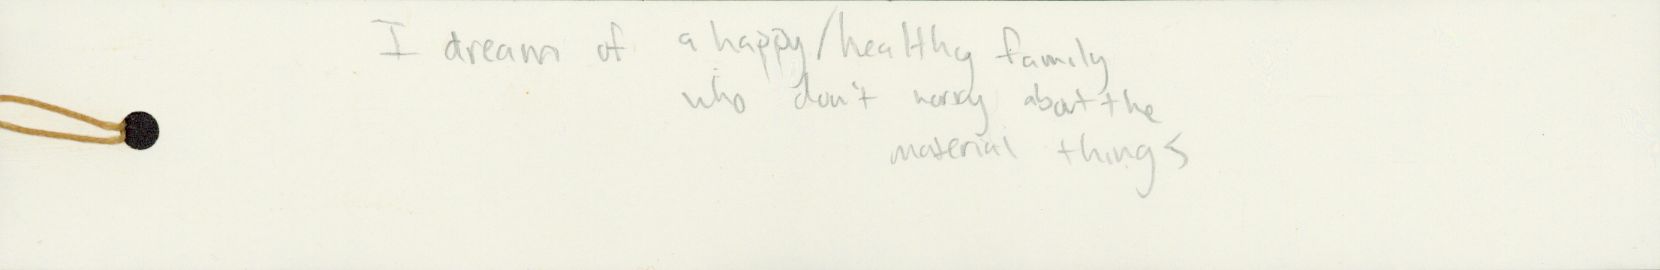 I dream of a happy/healthy family
who don't worry about the
material things